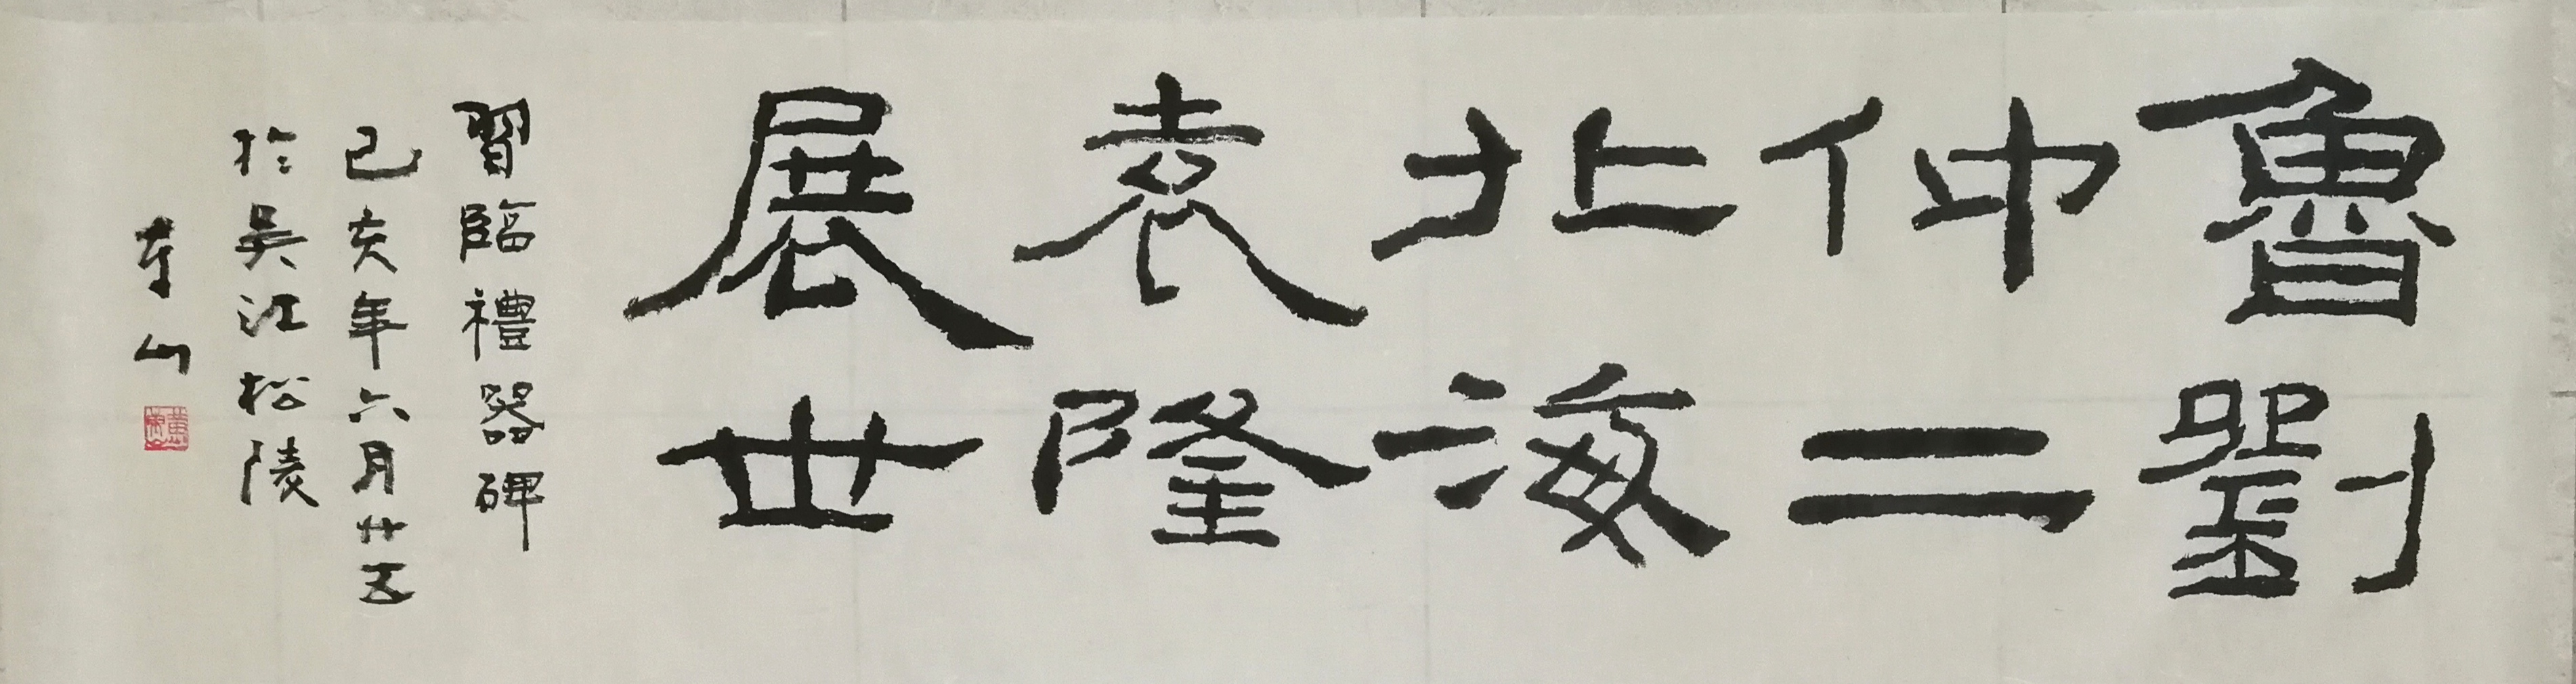 魯劉
仲二
北海
袁隆
展世
習臨禮器碑
己亥年六月廿五
於吴江松陵
山